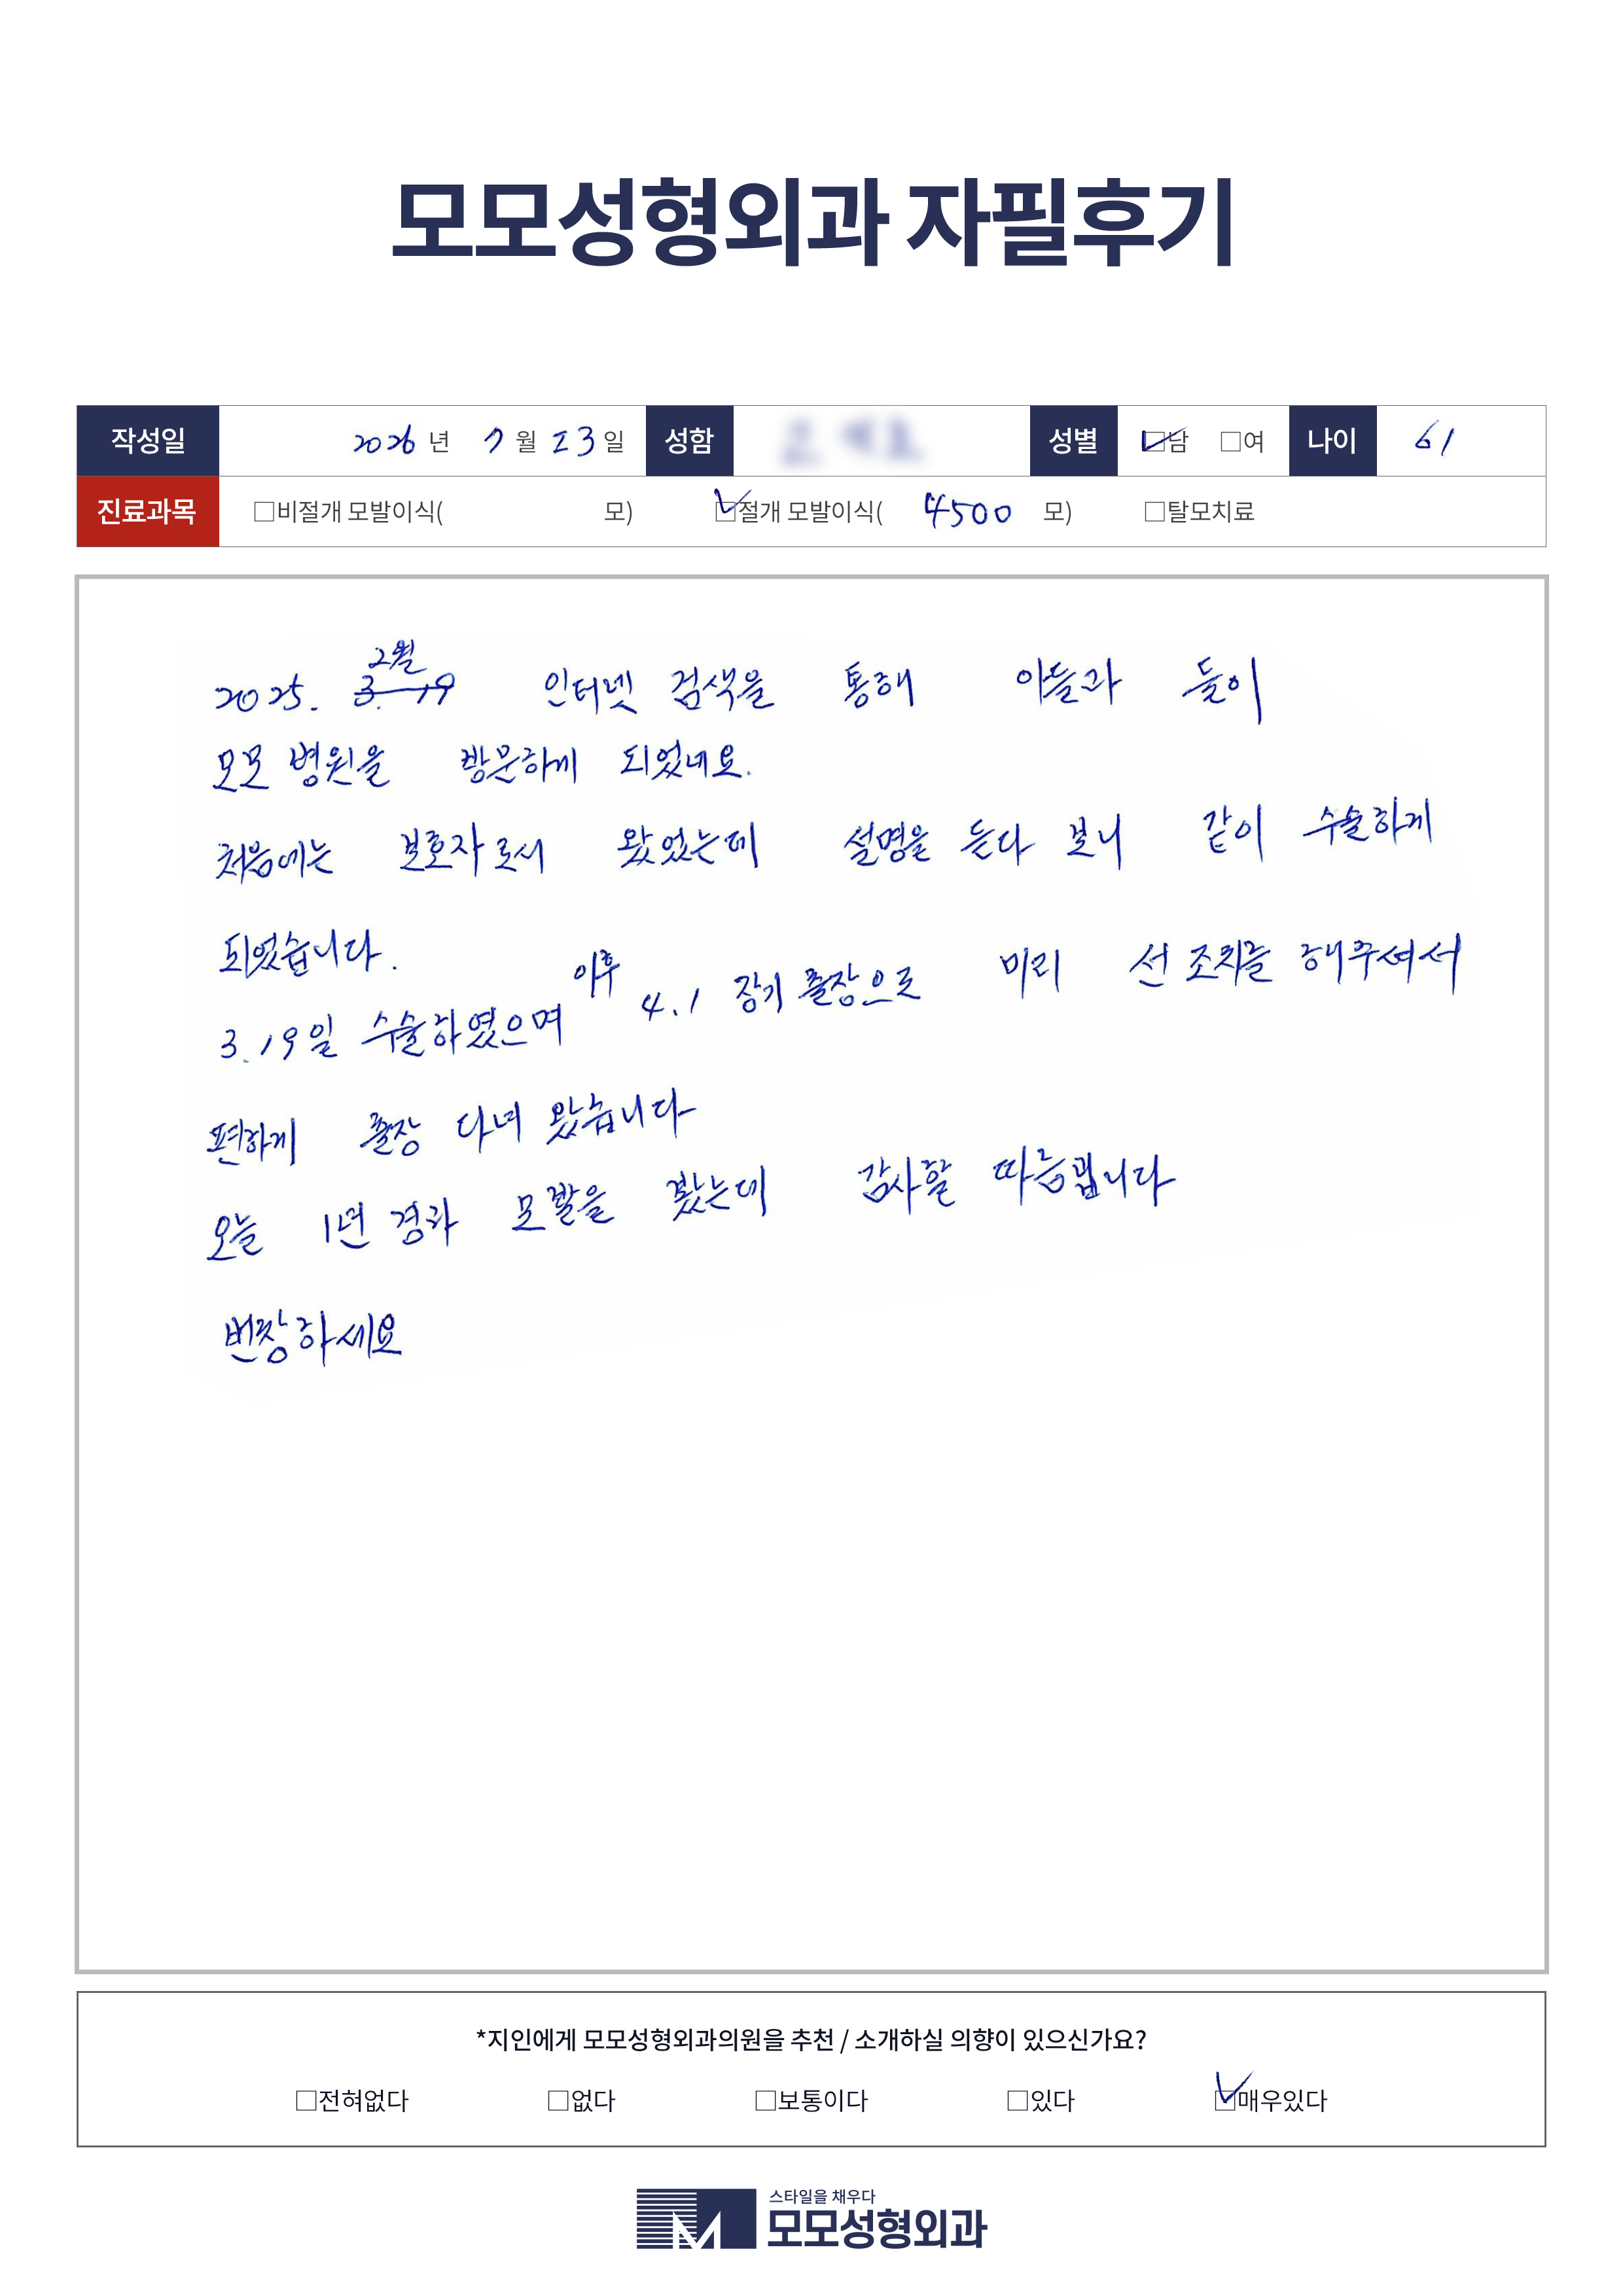 모모성형외과 자필후기
작성일 2026 년 7 월 23 일 성함 성별 ☑남 □여 나이 61
진료과목 □비절개 모발이식( 모) ☑절개 모발이식( 4500 모) □탈모치료
2025. 2월 3. 19 인터넷 검색을 통해 아들과 둘이
모모 병원을 방문하게 되었네요.
처음에는 보호자로서 왔었는데 설명을 듣다 보니 같이 수술하게
되었습니다.
3.19일 수술하였으며 이후 4.1 장기 출장으로 미리 선 조치를 해주셔서
편하게 출장 다녀 왔습니다
오늘 1년 경과 모발을 봤는데 감사할 따름입니다
번창하세요
*지인에게 모모성형외과의원을 추천 / 소개하실 의향이 있으신가요?
□전혀없다 □없다 □보통이다 □있다 ☑매우있다
스타일을 채우다
모모성형외과